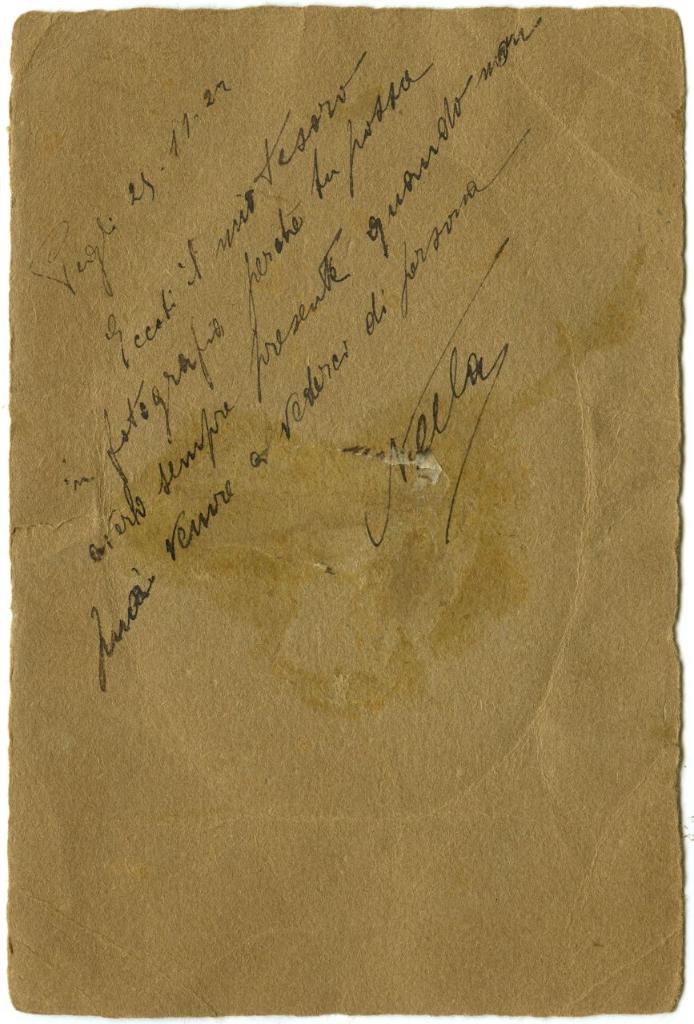 Pegli 25.11.22
Eccoti il mio tesoro
in fotografia perchè tu possa
averlo sempre presente quando non
puoi venire a vederci di persona
Nella